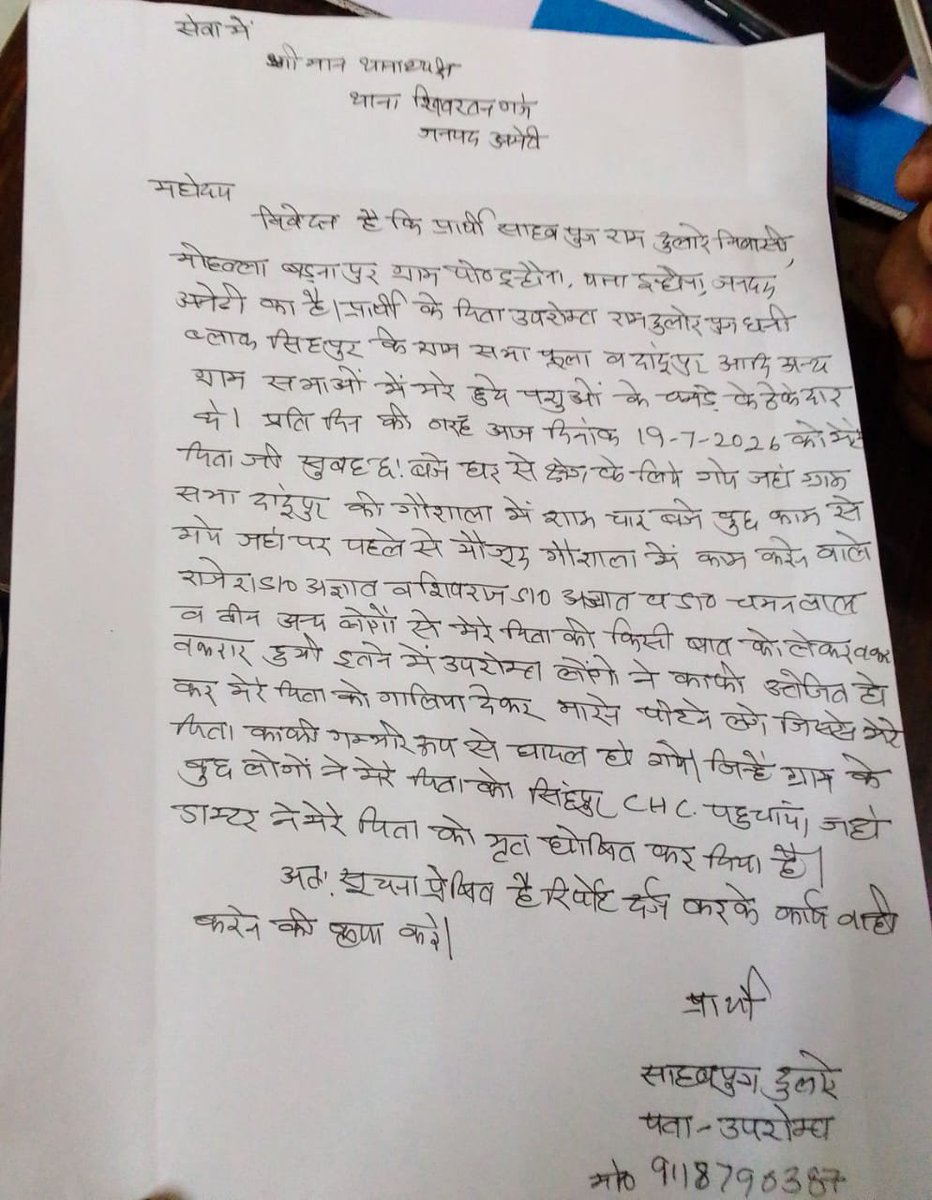 सेवा में
श्री मान थानाध्यक्ष
थाना शिवरतनगंज
जनपद अमेठी
महोदय
निवेदन है कि प्रार्थी साहब पुत्र राम दुलारे निवासी,
मोहल्ला ग्राम पो० इन्हौना, थाना इन्हौना, जनपद
अमेठी का है। प्रार्थी के पिता उपरोक्त रामदुलोर पुत्र धनी
ब्लाक सिंहपुर के ग्राम सभा फूला व दांदूपुर आदि अन्य
ग्राम सभाओं में मरे हुये पशुओं के चमड़े के ठेकेदार
थे। प्रति दिन की तरह आज दिनांक 19-7-2026 को मेरे
पिता जी सुबह छ: बजे घर से क्षेत्र के लिये गये जहां ग्राम
सभा दांदूपुर की गौशाला में शाम चार बजे कुछ काम से
गये जहां पर पहले से मौजूद गौशाला में काम करने वाले
राजेश S/० अज्ञात व शिवराज S/० अज्ञात व S/० चमनलाल
व तीन अन्य लोगों से मेरे पिता की किसी बात को लेकर
तकरार हुयी इतने में उपरोक्त लोंगो ने काफी उत्तेजित हो
कर मेरे पिता को गालिया देकर मारने पीटने लगे जिससे मेरे
पिता काफी गम्भीर रूप से घायल हो गये। जिन्हें ग्राम के
कुछ लोगों ने मेरे पिता को सिंहपुर CHC. पहुचाये। जहां
डाक्टर ने मेरे पिता को मृत घोषित कर दिया है।
अत: सूचना प्रेषित है रिर्पोट दर्ज करके कार्य वाही
करने की कृपा करें।
प्रार्थी
साहब पुत्र दुलारे
पता - उपरोक्त
मो० 9118790387